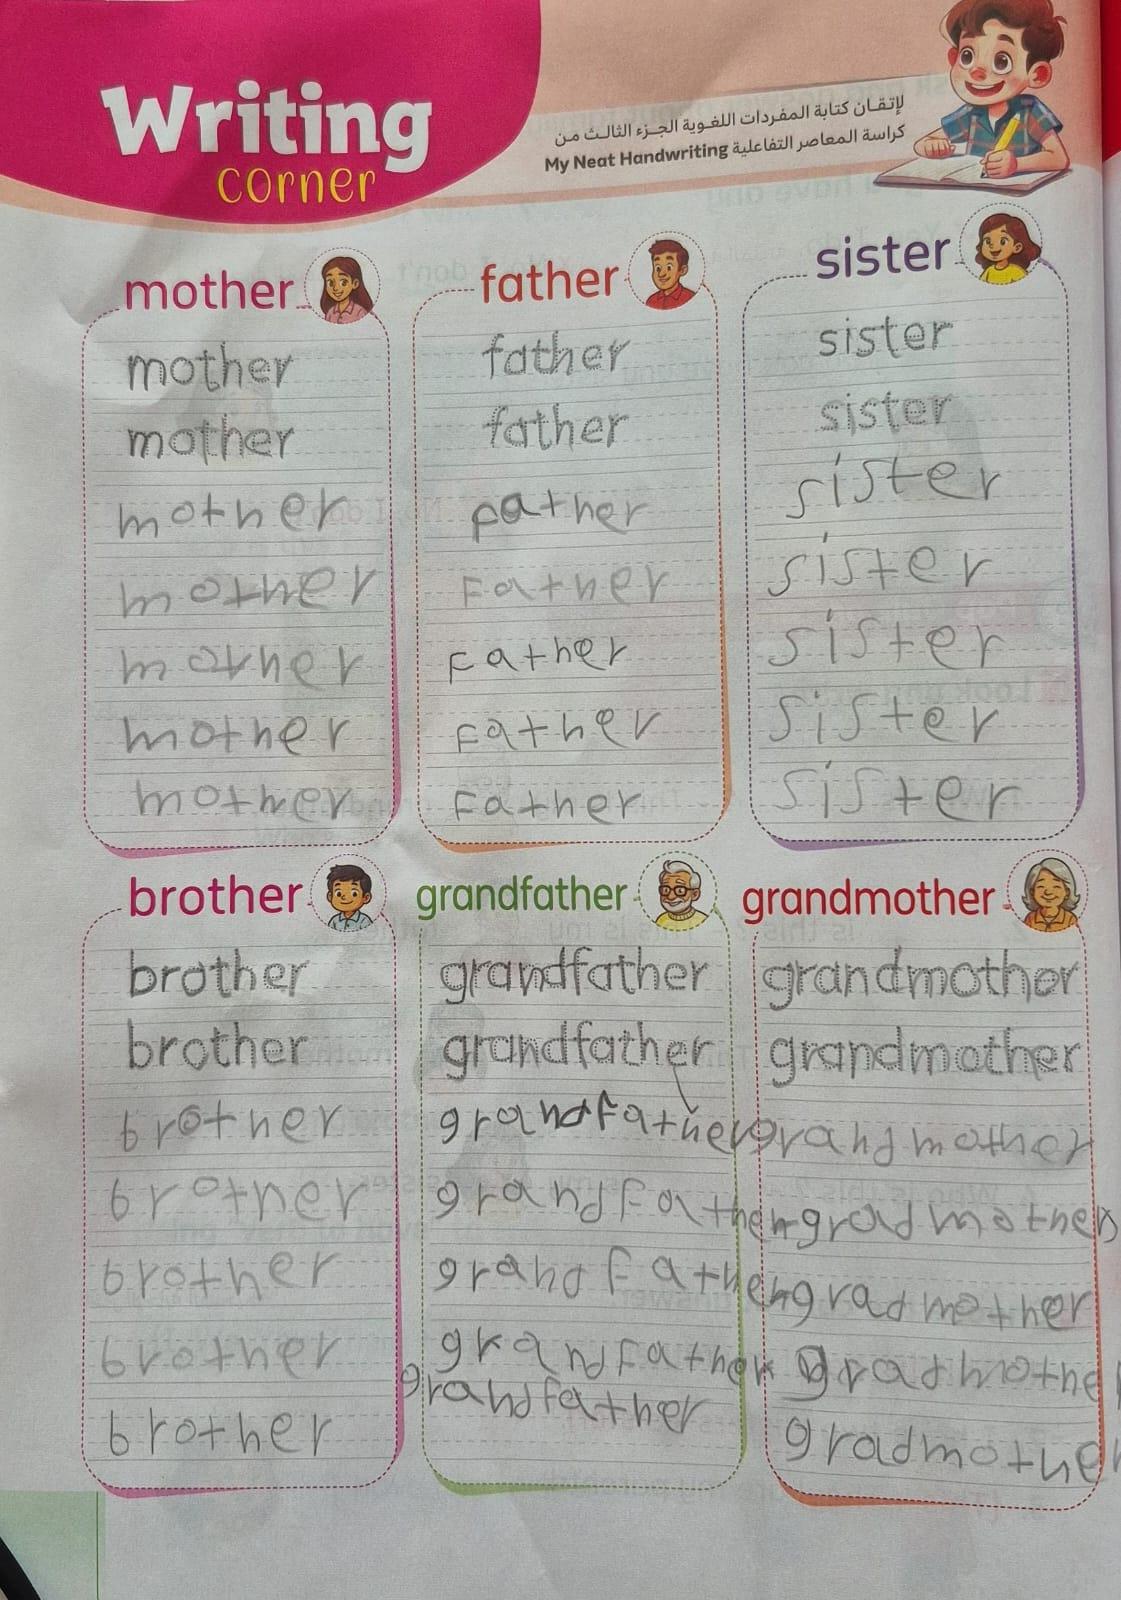 Writing
corner
لإتقان كتابة المفردات اللغوية الجزء الثالث من
كراسة المعاصر التفاعلية My Neat Handwriting
mother
mother
mother
mother
mother
mother
mother
mother
father
father
father
father
Father
Father
Father
Father
sister
sister
sister
sister
sister
sister
sister
sister
brother
brother
brother
brother
brother
brother
brother
brother
grandfather
grandfather
grandfather
grandfather
grandfather
grandfather
grandfather
grandfather
grandmother
grandmother
grandmother
grandmother
gradmother
gradmother
gradmother
gradmother